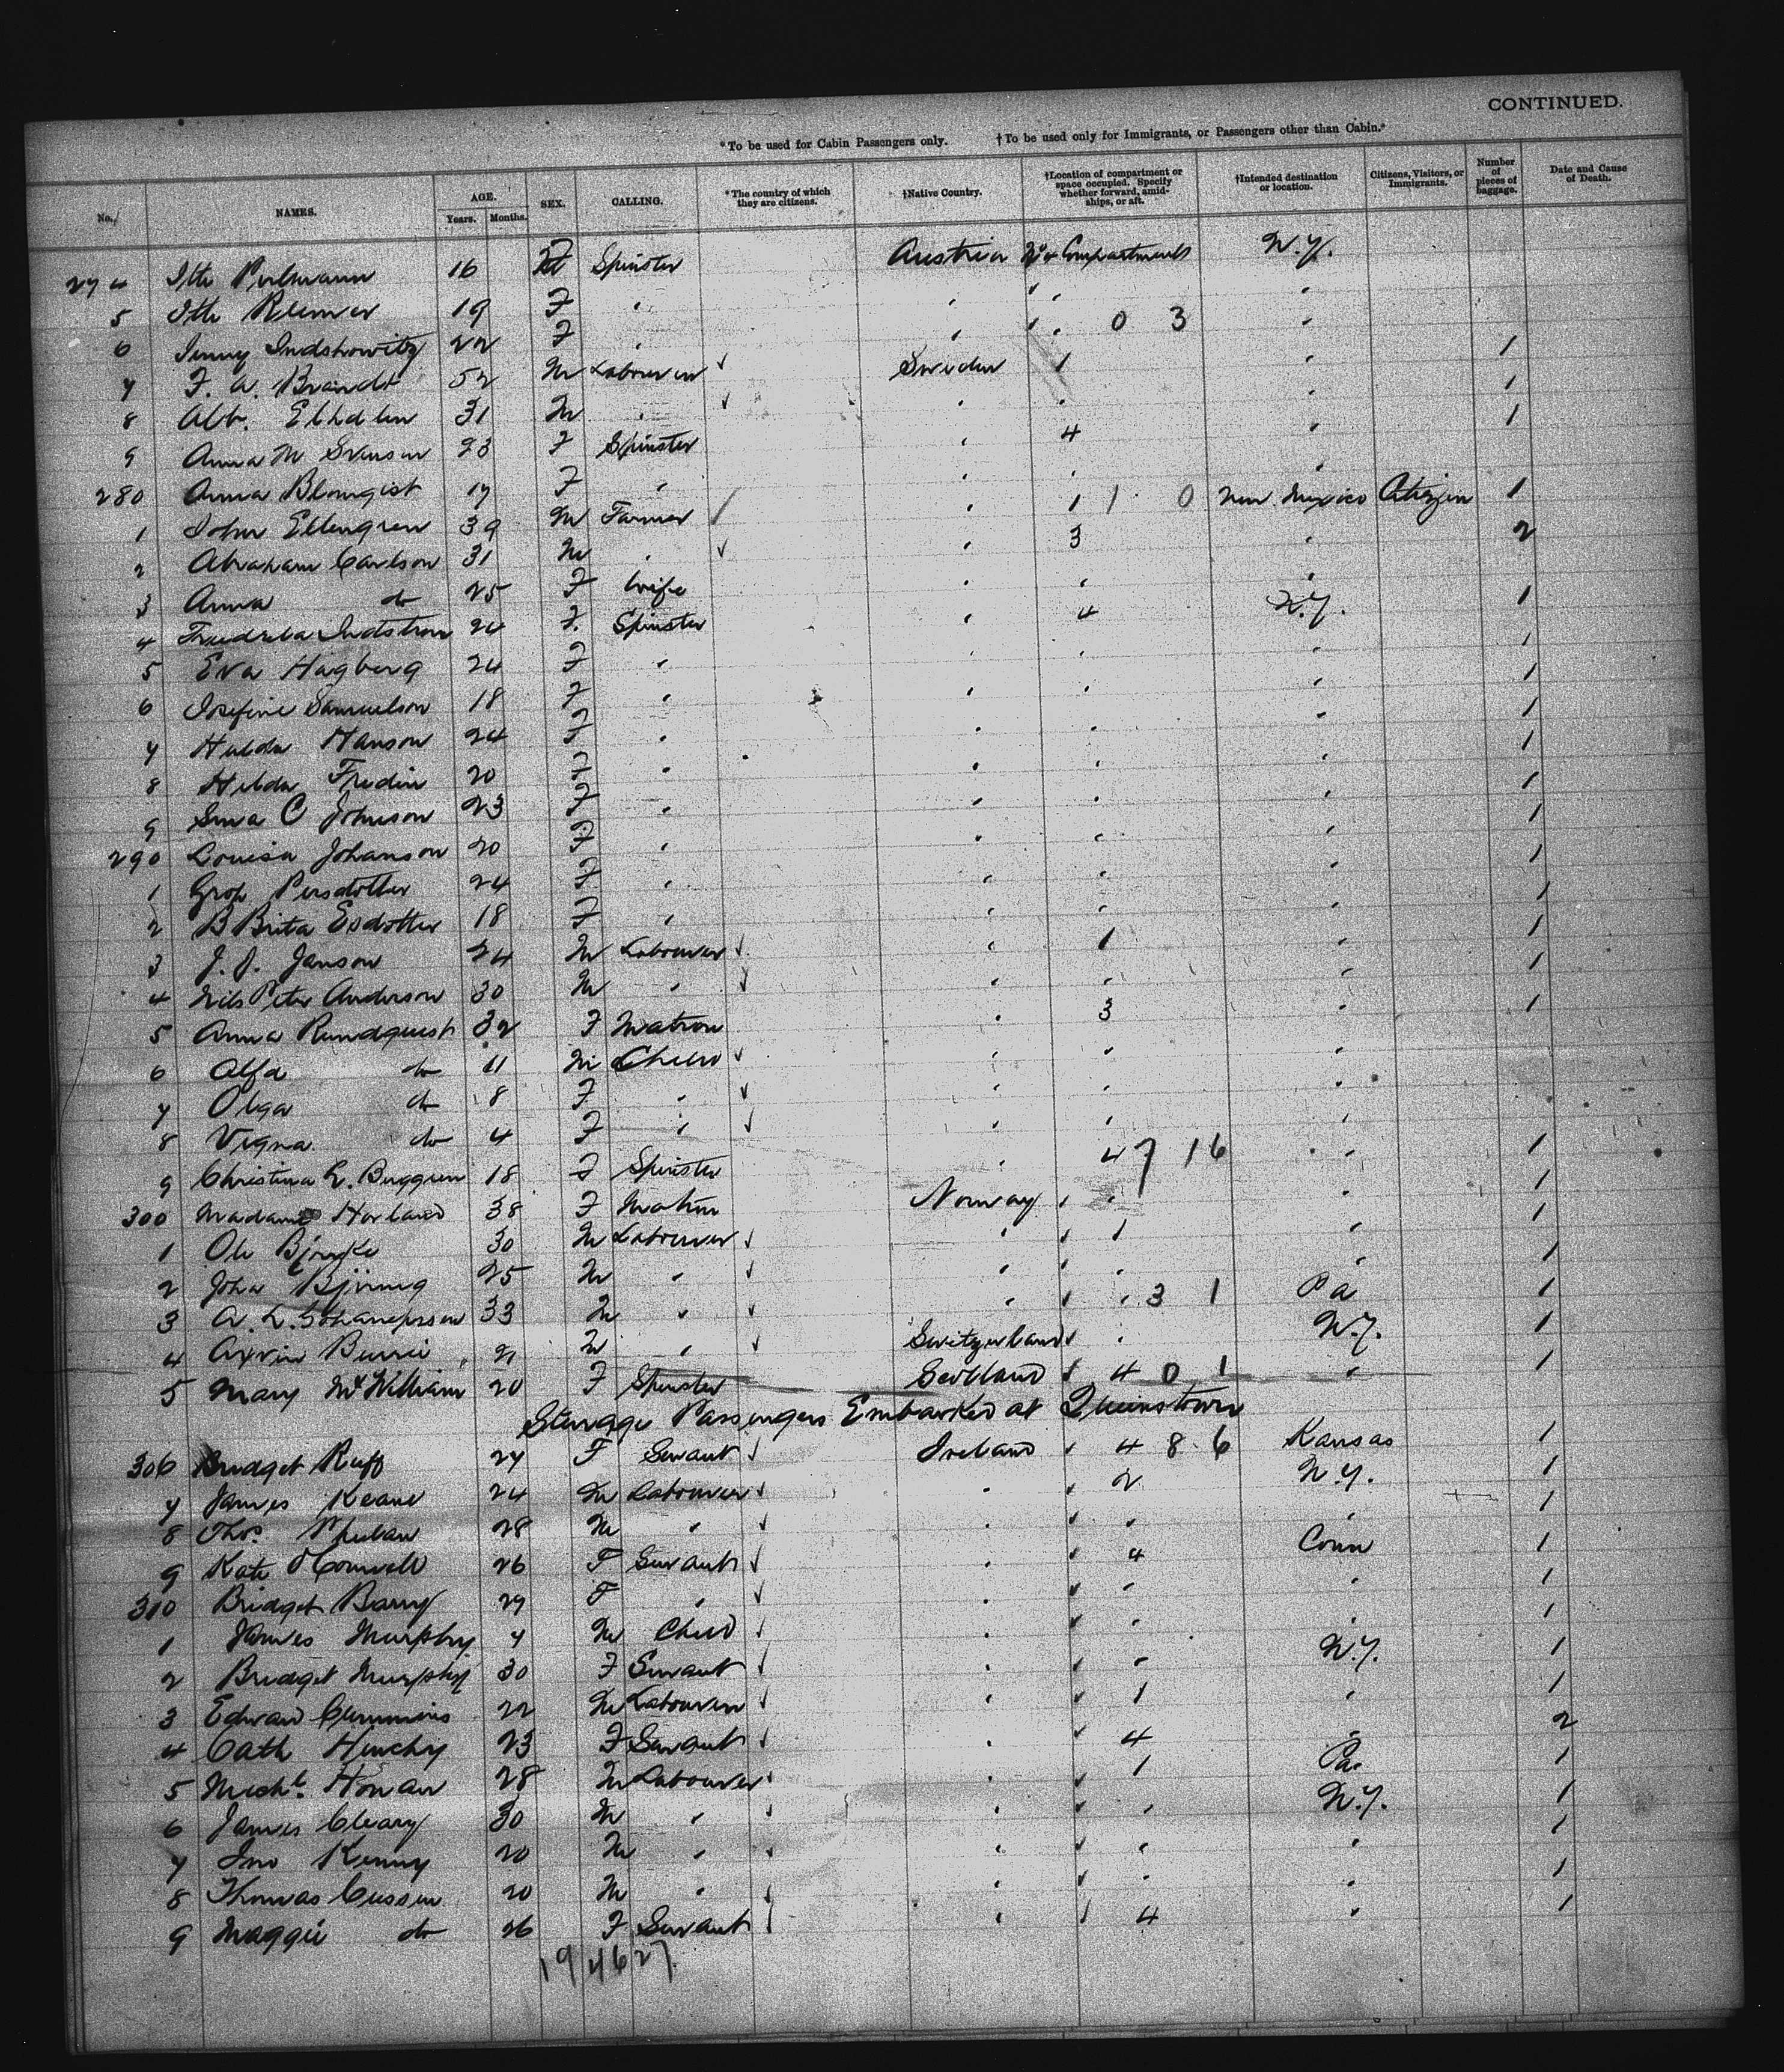 CONTINUED.
*To be used for Cabin Passengers only. †To be used only for Immigrants, or Passengers other than Cabin.*
No. NAMES. AGE. Years. Months. SEX. CALLING. *The country of which they are citizens. †Native Country. †Location of compartment or space occupied. Specify whether forward, amidships, or aft. †Intended destination or location. Citizens, Visitors, or Immigrants. Number of pieces of baggage. Date and Cause of Death.
274 Itte Perlmann 16 F Spinster Austria No 4 Compartment N.Y.
5 Itte Riemer 19 F " " " "
6 Jenny Indshowitz 22 F " " " 0 3 "
7 F. A. Brandt 52 M Labourer ✓ Sweden 1 " 1
8 Alb. Ekhdlen 31 M " ✓ " " " 1
9 Anna M Svenson 23 F Spinster " 4 " 1
280 Anna Blomqist 17 F " " " "
1 John Ellengren 39 M Farmer ✓ " 1 1 0 New Mexico Citizen 1
2 Abraham Carlson 31 M " ✓ " 3 " 2
3 Anna do 25 F Wife " " "
4 Fredrika Indstrom 24 F Spinster " 4 N.Y. 1
5 Eva Hagberg 24 F " " " " 1
6 Josefine Samuelson 18 F " " " " 1
7 Hulda Hanson 24 F " " " " 1
8 Hilda Fredin 20 F " " " " 1
9 Sma C Johnson 23 F " " " " 1
290 Louisa Johanson 20 F " " " " 1
1 Persdotter 24 F " " " " 1
2 B Brita Esdotter 18 F " " " " 1
3 J. J. Janson 24 M Labourer ✓ " 1 " 1
4 Nils Peter Anderson 30 M " ✓ " " " 1
5 Anna Rundquist 32 F Matron " 3 " 1
6 Alfd do 11 M Child ✓ " " "
7 Olga do 8 F " ✓ " " "
8 Vigna do 4 F " ✓ " " "
9 Christina L. Buggren 18 F Spinster " 4 7 16 " 1
300 Madame Hovland 38 F Matron Norway ✓ " " 1
1 Ole 30 M Labourer ✓ " ✓ 1 " 1
2 John 25 M " ✓ " ✓ " " 1
3 A. L. 33 M " ✓ " ✓ " 3 1 Pa 1
4 Burri 21 M " ✓ Switzerland ✓ " N.Y. 1
5 Mary McWilliam 20 F Spinster Scotland ✓ 4 0 1 " 1
Steerage Passengers Embarked at Queenstown
306 Bridget Ruff 24 F Servant ✓ Ireland ✓ 4 8 6 Kansas 1
7 James Keane 24 M Labourer ✓ " ✓ 2 N.Y. 1
8 Thos. Phelan 28 M " ✓ " ✓ " " 1
9 Kate O'Connell 26 F Servant ✓ " ✓ 4 Conn 1
310 Bridget Barry 29 F " ✓ " ✓ " " 1
1 James Murphy 7 M Child ✓ " ✓ " " 1
2 Bridget Murphy 30 F Servant ✓ " ✓ " N.Y. 1
3 Edward Cummins 22 M Labourer ✓ " ✓ 1 " 1
4 Cath Hinchy 23 F Servant ✓ " ✓ 4 " 2
5 Michl. Honan 28 M Labourer ✓ " ✓ 1 Pa. 1
6 James Cleary 30 M " ✓ " ✓ " N.Y. 1
7 Jno Kenny 20 M " ✓ " ✓ " " 1
8 Thomas Cussen 20 M " ✓ " ✓ " " 1
9 Maggie do 26 F Servant ✓ " ✓ 4 " 1